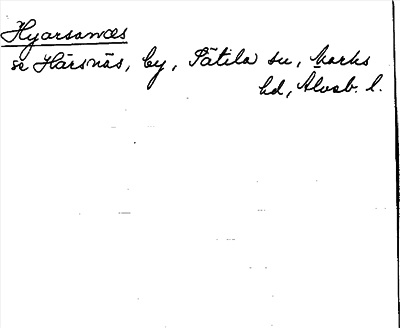 Hyarsanæs
se Härsnäs, by, Sätila sn, Marks
hd, Älvsb. l.